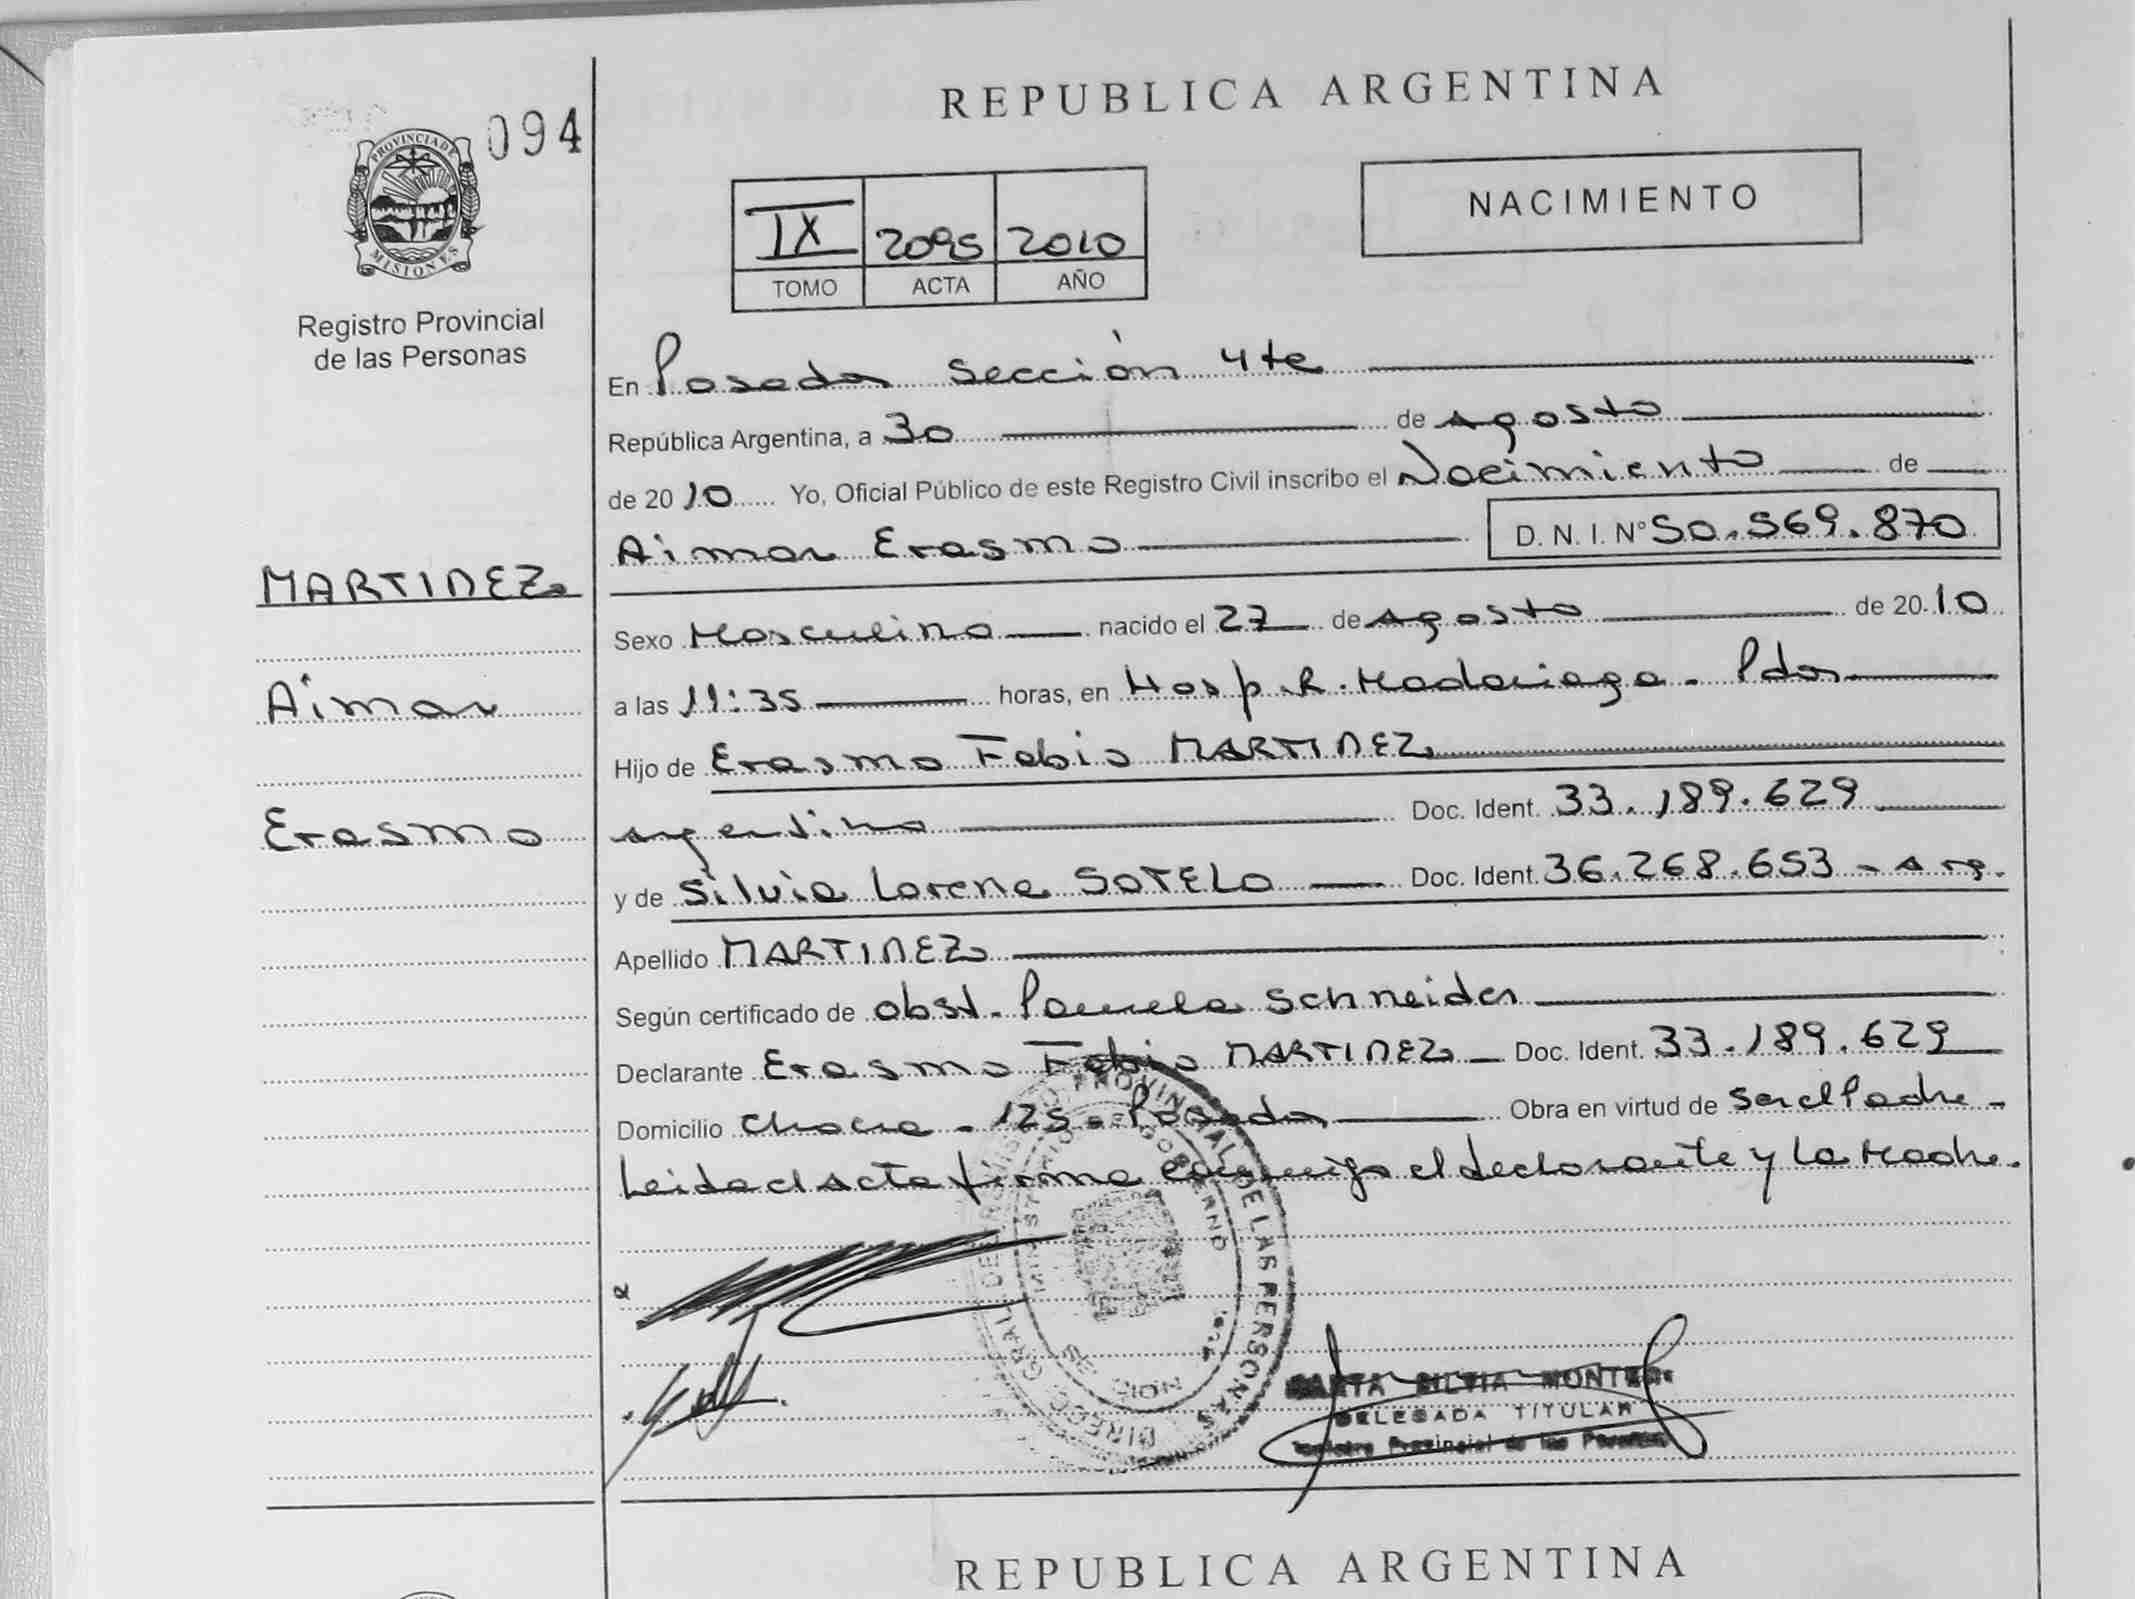 094
PROVINCIA DE
MISIONES
Registro Provincial
de las Personas
MARTINEZ
Aimar
Erasmo
REPUBLICA ARGENTINA
NACIMIENTO
IX 2095 2010
TOMO ACTA AÑO
En Posadas Sección 4te
República Argentina, a 30 de Agosto
de 2010 Yo, Oficial Público de este Registro Civil inscribo el Nacimiento de
Aimar Erasmo D. N. I. N° 50.569.870
Sexo Masculino nacido el 27 de Agosto de 2010
a las 11:35 horas, en Hosp. R. Madariaga - Pdas
Hijo de Erasmo Fabio MARTINEZ
argentino Doc. Ident. 33.189.629
y de Silvia Lorena SOTELO Doc. Ident. 36.268.653 - Arg.
Apellido MARTINEZ
Según certificado de Obst. Pamela Schneider
Declarante Erasmo Fabio MARTINEZ Doc. Ident. 33.189.629
Domicilio Chacra - 125 - Posadas Obra en virtud de Ser el Padre -
Leida el Acta firma conmigo el declarante y la Madre.
PROVINCIAL DE LAS PERSONAS
MINISTERIO DE GOBIERNO
SILVIA
DELEGADA TITULAR
Registro Provincial de las Personas
REPUBLICA ARGENTINA